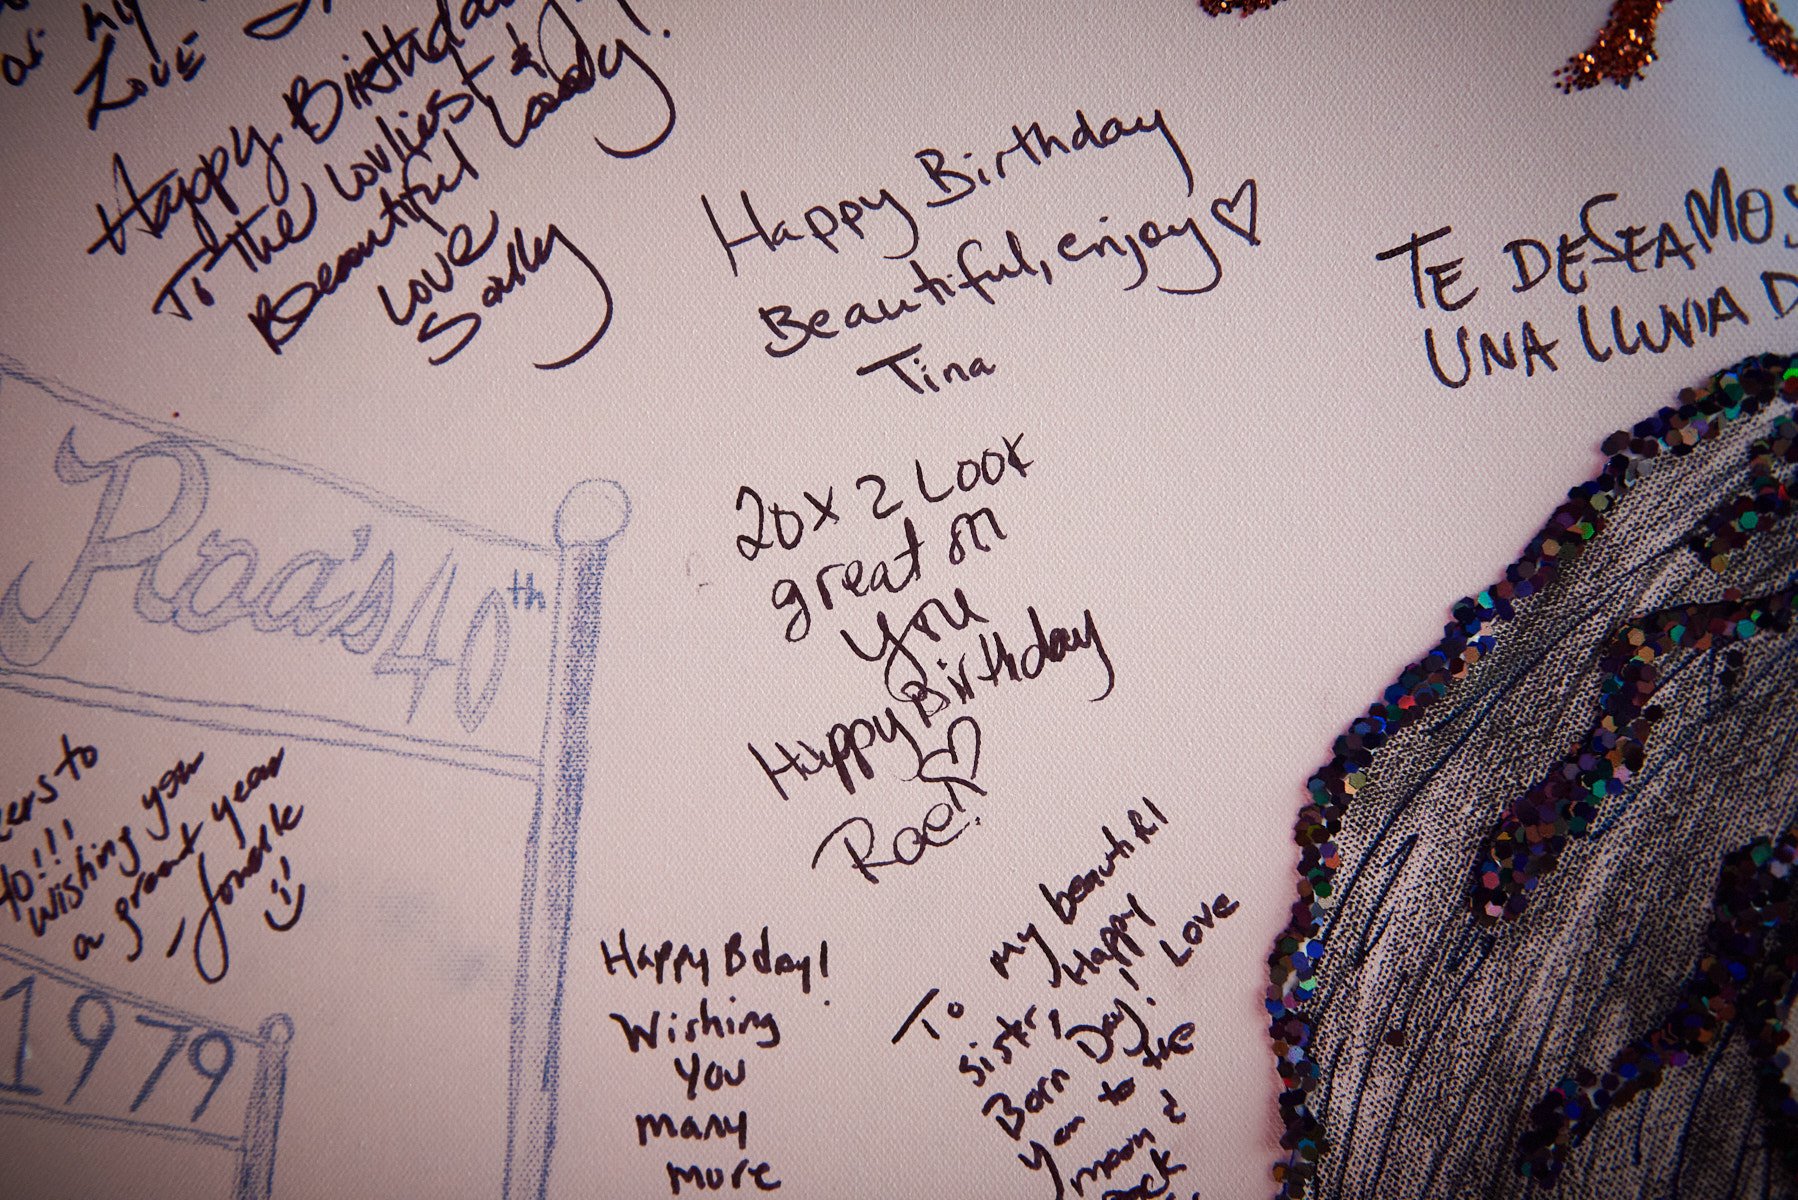 my
Love
Happy Birthday
To the lovliest &
Beautiful Lady!
Love
Sally
Happy Birthday
Beautiful, enjoy ♡
Tina
TE DESEAMOS
UNA LLUVIA D
20 x 2 Look
great on
you
Happy Birthday
Rae!
Raa's 40th
to
40!!
Wishing you
a great year
1979
Happy Bday!
Wishing
you
many
more
To my beautiful
sister, Happy
Born Day! Love
you to the
moon &